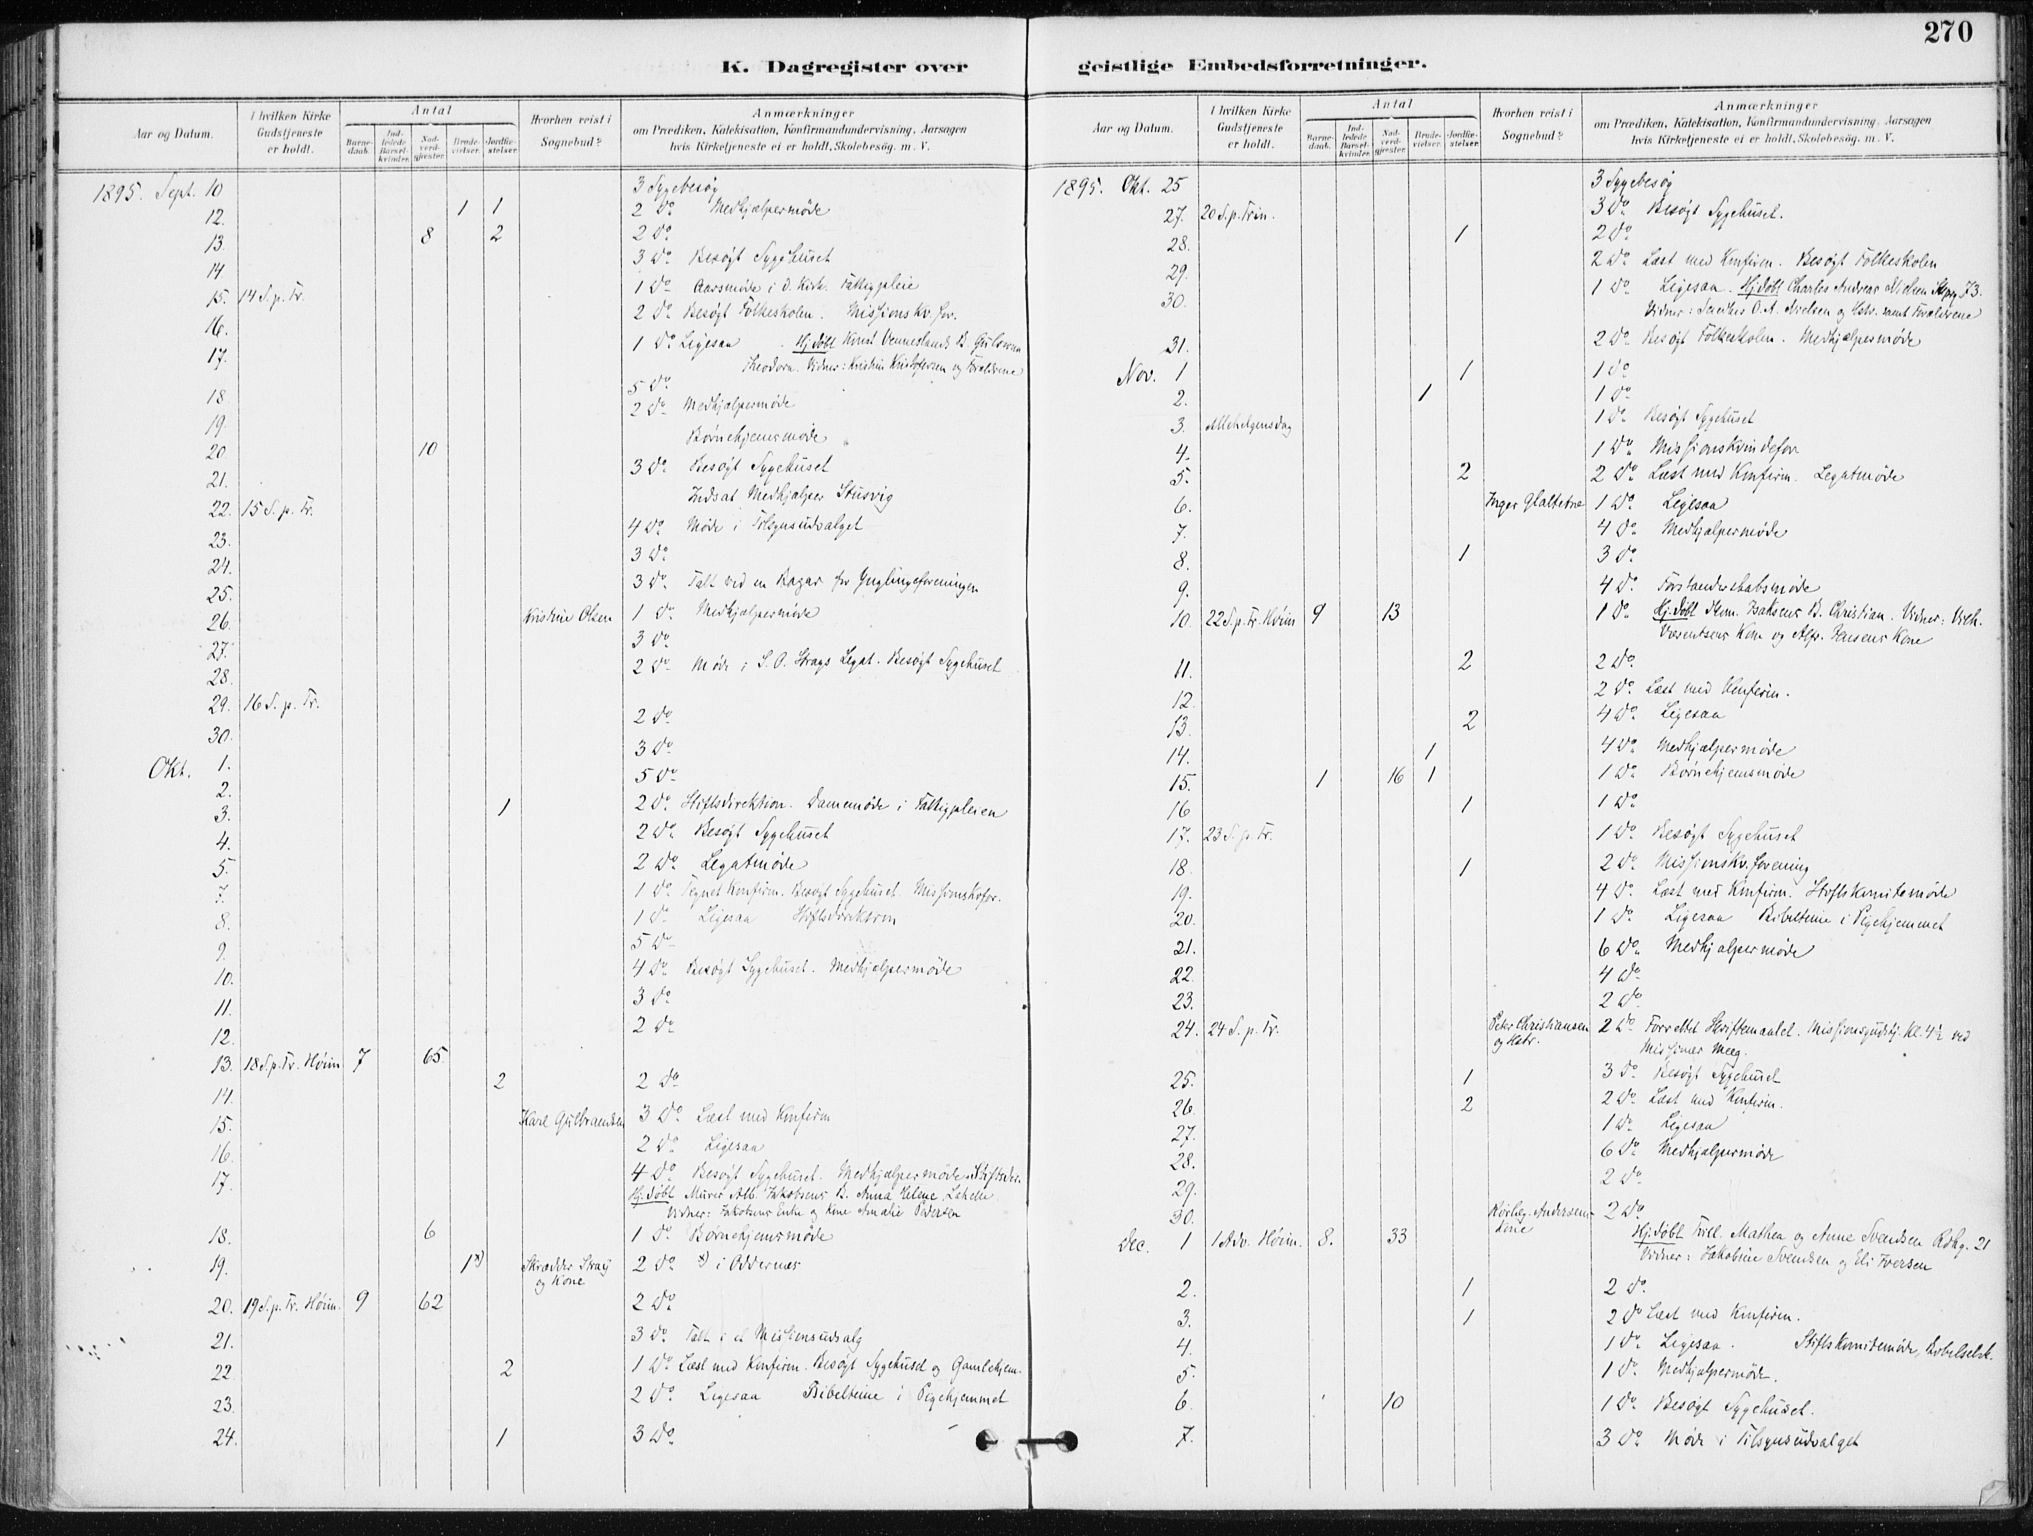 270
K. Dagregister over geistlige Embedsforretninger.
Aar og Datum. I hvilken Kirke Gudstjeneste er holdt. Antal Barnedaab. Indledede Barselkvinder. Nadverdgjester. Brudevielser. Jordfæstelser. Hvorhen reist i Sognebud? Anmærkninger om Prædiken, Katekisation, Konfirmandundervisning, Aarsagen hvis Kirketjeneste ei er holdt, Skolebesøg. m. V.
1895. Sept. 10 3 Sygebesøg
12. 1 1 2 Do Medhjælpermøde
13. 8 2 2 Do
14 3 Do Besøgt Sygehuset
15. 14 S. p. Tr. 1 Do Aarsmøde i d. Kirk. Fattigpleie
16. 2 Do Besøgt Folkeskolen. Missionskv. for.
17. 1 Do Ligesaa Hj.døbt Knut Venneslands B.
Theodora. Vidner: Kristine Kristofersen og Forældrene
18 5 Do
19. 2 Do Medhjælpermøde
20 10 Børnehjemsmøde
21. 3 Do Besøgt Sygehuset
22. 15 S. p. Tr. Indsat Medhjælper Stusvig
23. 4 Do Møde i Tilsynsudvalget
24. 3 Do
25. 3 Do Talt ved en Bazar for Ynglingeforeningen
26. Kristine Olsen 1 Do Medhjælpermøde
27. 3 Do
28. 2 Do Møde i S. O. Strays Legat. Besøgt Sygehuset
29. 16 S. p. Tr.
30. 2 Do
Okt. 1. 3 Do
2. 5 Do
3. 1 2 Do Stiftsdirektion. Damemøde i Fattigpleien
4. 2 Do Besøgt Sygehuset
5. 2 Do Legatmøde
7. 1 Do Tegnet Konfirm. Besøgt Sygehuset. Missionskvfor.
8. 1 Do Ligesaa Stiftsdirektion
9. 5 Do
10. 4 Do Besøgt Sygehuset. Medhjælpermøde
11. 3 Do
12. 2 Do
13. 18 S. p. Tr. Høim 7 65.
14. 2 2 Do
15. Karl Gulbrandsen 3 Do Læst med Konfirm
16. 2 Do Ligesaa
17. 4 Do Besøgt Sygehuset. Medhjælpermøde. Stiftsdir.
Hj.døbt Murer Alb. Jakobsens B. Anna Helene
Vidner: Jakobsens Enke og Kine Amalie Pedersen
18. 6 1 Do Børnehjemsmøde
19. 1x) Skrædder Stray og Kone 2 Do x) i Oddernæs
20. 19 S. p. Tr. Høim. 9 62 2 Do
21. 3 Do Talt i et Missionsudsalg
22 2 1 Do Læst med Konfirm. Besøgt Sygehuset og Gamlehjem.
23. 2 Do Ligesaa Bibeltime i Pigehjemmet
24. 1 3 Do
Aar og Datum. I hvilken Kirke Gudstjeneste er holdt. Antal Barnedaab. Indledede Barselkvinder. Nadverdgjester. Brudevielser. Jordfæstelser. Hvorhen reist i Sognebud? Anmærkninger om Prædiken, Katekisation, Konfirmandundervisning, Aarsagen hvis Kirketjeneste ei er holdt, Skolebesøg. m. V.
1895. Okt. 25 3 Sygebesøg
27. 20 S. p. Trin. 3 Do Besøgt Sygehuset.
28. 1 2 Do
29. 2 Do Læst med Konfirm. Besøgt Folkeskolen
30. 1 Do Ligesaa. Hj.døbt Charles Andreas Nielsen 73.
Vidner: O. A. Nielsen og Hstr. samt Forældrene
31. 2 Do Besøgt Folkeskolen. Medhjælpermøde
Nov. 1 1 1 Do
2. 1 1 Do
3. Allehelgensdag 1 Do Besøgt Sygehuset
4. 1 Do Missionskvindefor
5. 2 2 Do Læst med Konfirm. Legatmøde
6. Inger Glattetre 1 Do Ligesaa
7. 4 Do Medhjælpermøde
8. 1 3 Do
9. 4 Do Forstanderskabsmøde
10. 22 S. p. Tr. Høim 9 13 1 Do Hj.døbt Isaksens B. Christian. Vidner: Vilh.
Kone og Alfr. Jensens Kone
11. 2 2 Do
12. 2 Do Læst med Konfirm.
13. 2 4 Do Ligesaa
14. 1 4 Do Medhjælpermøde
15. 1 16 1 1 Do Børnehjemsmøde
16 1 1 Do
17. 23 S. p. Tr. 1 Do Besøgt Sygehuset
18. 1 2 Do Missionskv. forening
19. 4 Do Læst med Konfirm. Stiftskomitemøde
20. 1 Do Ligesaa Bibeltime i Pigehjemmet
21. 6 Do Medhjælpermøde
22. 4 Do
23. 2 Do
24. 24 S. p. Tr. Peter Christiansen og Hstr. 2 Do Forrettet Skriftemaalet. Missionsgudstj. Kl. 4½ ved
Missionær Meeg.
25. 1 3 Do Besøgt Sygehuset
26. 2 2 Do Læst med Konfirm.
27. 1 Do Ligesaa
28. 6 Do Medhjælpermøde
29. 2 Do
30. Andersens Kone 2 Do
Dec. 1 1 Adv. Høim. 8. 33 Hj.døbt Trill. Mathea og Anne Svendsen Rdhg. 21
Vidner: Jakobine Svendsen og Eli Iversen
2. 1 2 Do
3. 1 2 Do Læst med Konfirm.
4. 1 Do Ligesaa. Stiftskomitemøde, Bibelselsk.
5. 1 Do Medhjælpermøde.
6. 10 1 Do Besøgt Sygehuset.
7. 3 Do Møde i Tilsynsudvalget